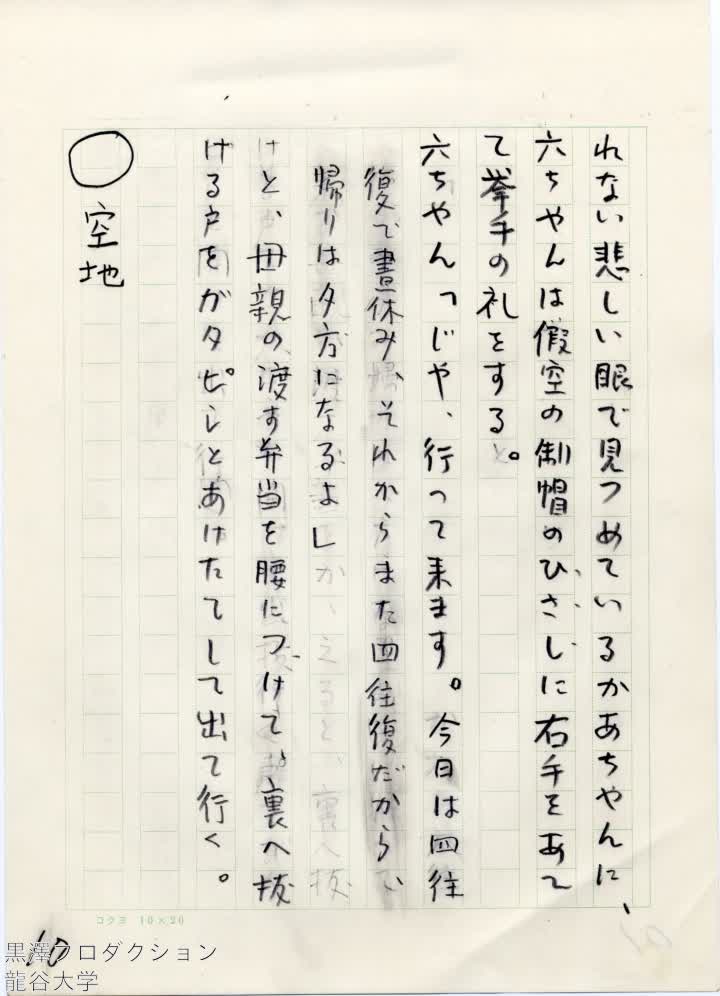 れない悲しい眼で見つめているかあちやんに、
六ちやんは假空の制帽のひさしに右手をあて
て挙手の礼をする。
六ちやん「じや、行って来ます。今日は四往
復で晝休み、それからまた四往復だから、
帰りは夕方になるよ」
けと、母親の渡す弁当を腰につけて、裏へ抜
ける戸をガタピシとあけたてして出て行く。
○空地
コクヨ 10×20
10
黒澤プロダクション
龍谷大学